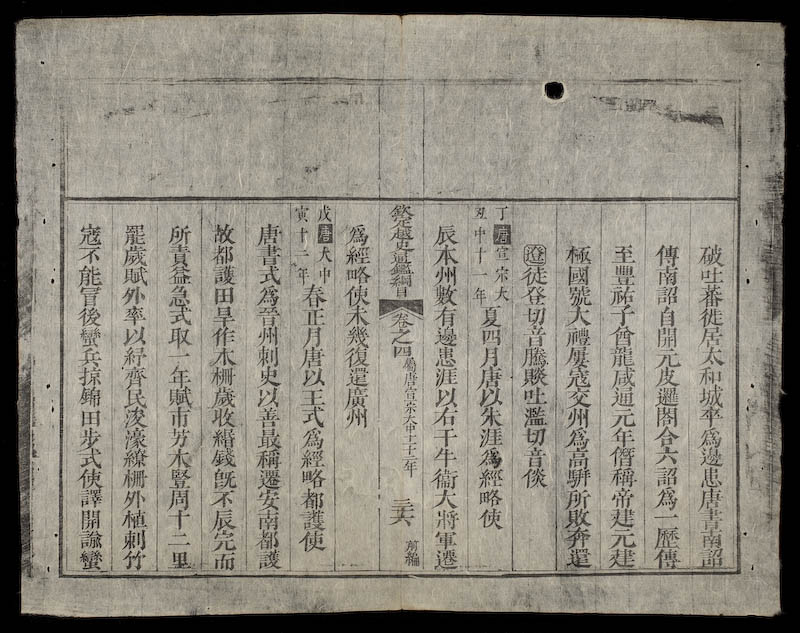 破吐蕃徙居太和城卒爲邊患唐書南詔
傳南詔自開元皮邏閣合六詔爲一歷傳
至豐祐子酋龍咸通元年僭稱帝建元建
極國號大禮屢寇交州爲高騈所敗奔還
邆徒登切音騰賧吐濫切音倓
丁丑唐宣宗大中十一年夏四月唐以朱涯爲經略使
辰本州數有邊患涯以右千牛衞大將軍遷
欽定越史通鑑綱目 卷之四 屬唐宣宗大中十一十二年 三六 前編
爲經略使未幾復還廣州
戊寅唐大中十二年春正月唐以王式爲經略都護使
唐書式爲晉州刺史以善最稱遷安南都護
故都護田早作木柵歲收緡錢旣不辰完而
所責益急式取一年賦市芀木豎周十二里
罷歲賦外率以紓齊民浚濠繚柵外植刺竹
寇不能冒後蠻兵掠錦田步式使譯開諭蠻